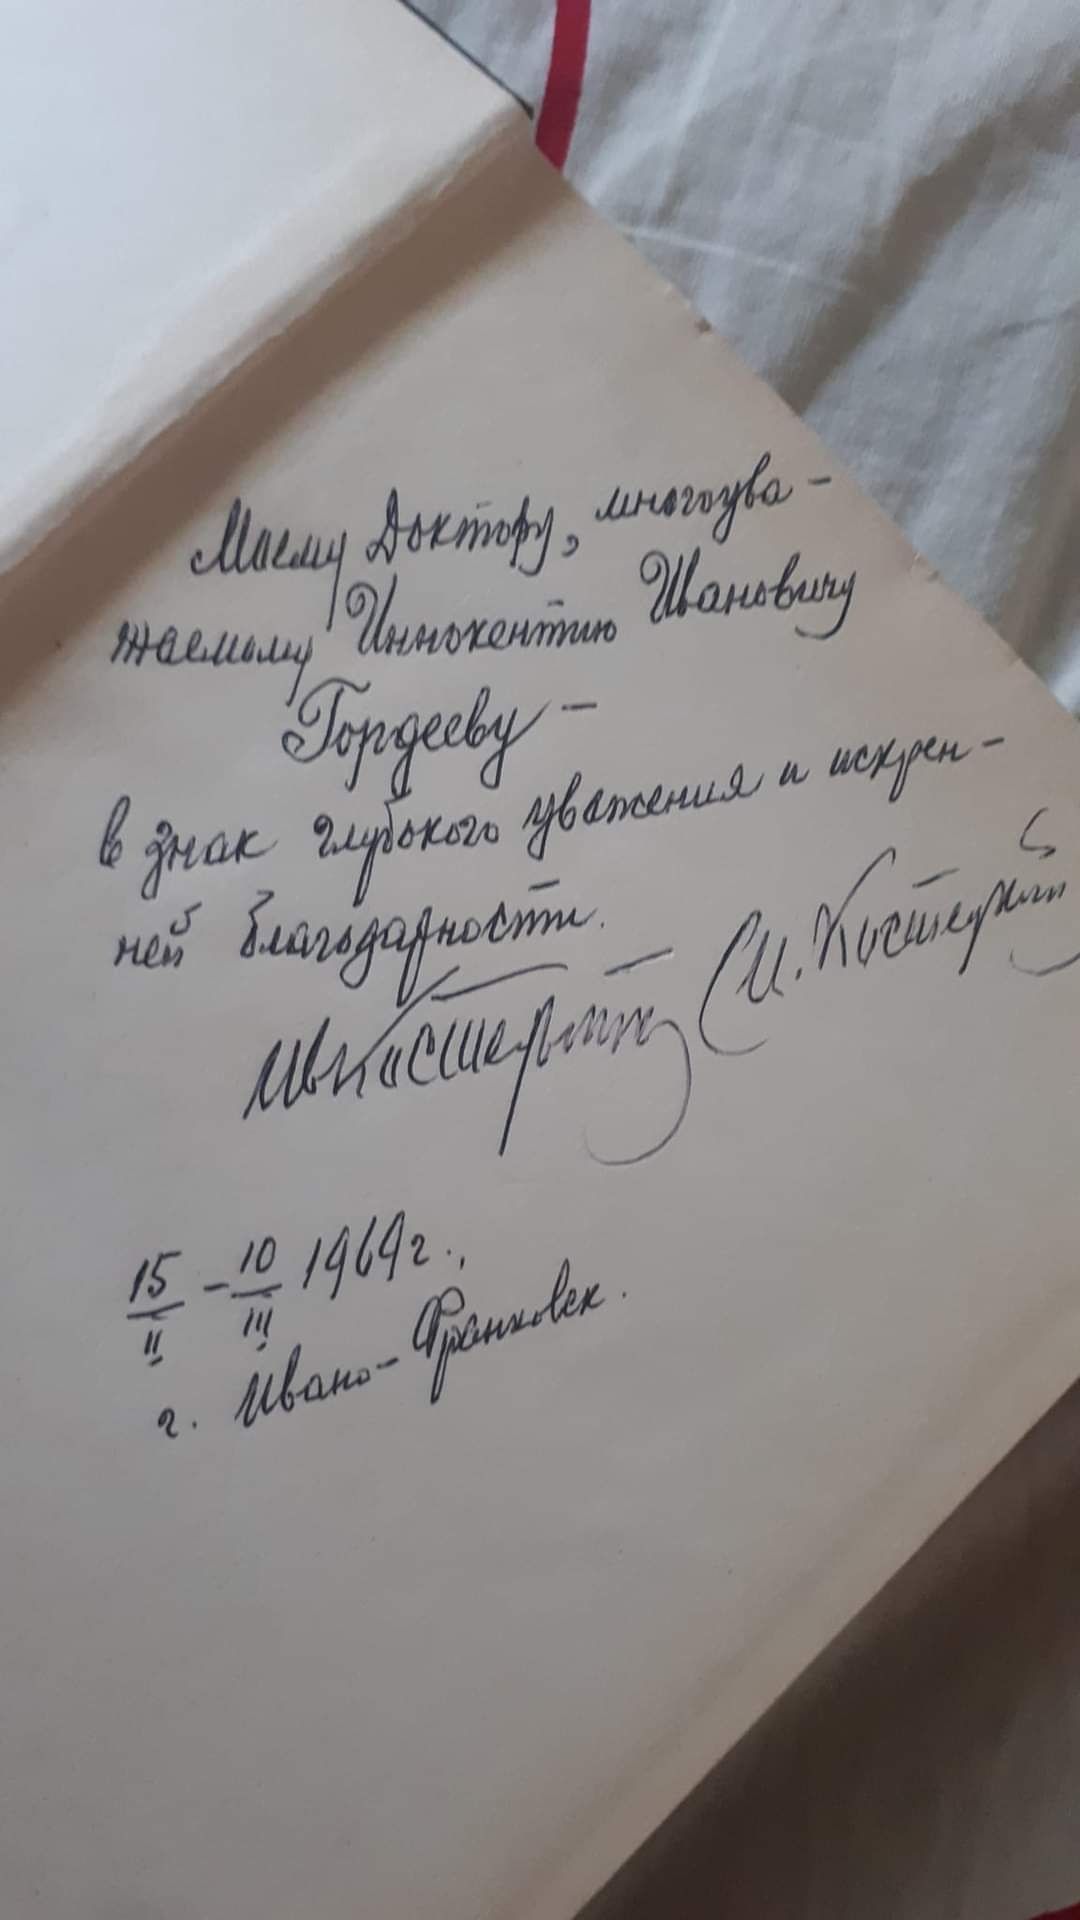 Моему Доктору, многоува-
жаемому Иннокентию Ивановичу
Гордееву –
в знак глубокого уважения и искрен-
ней благодарности.
(И. Костецкий
15/II – 10/III 1969г.,
г. Ивано-Франковск.